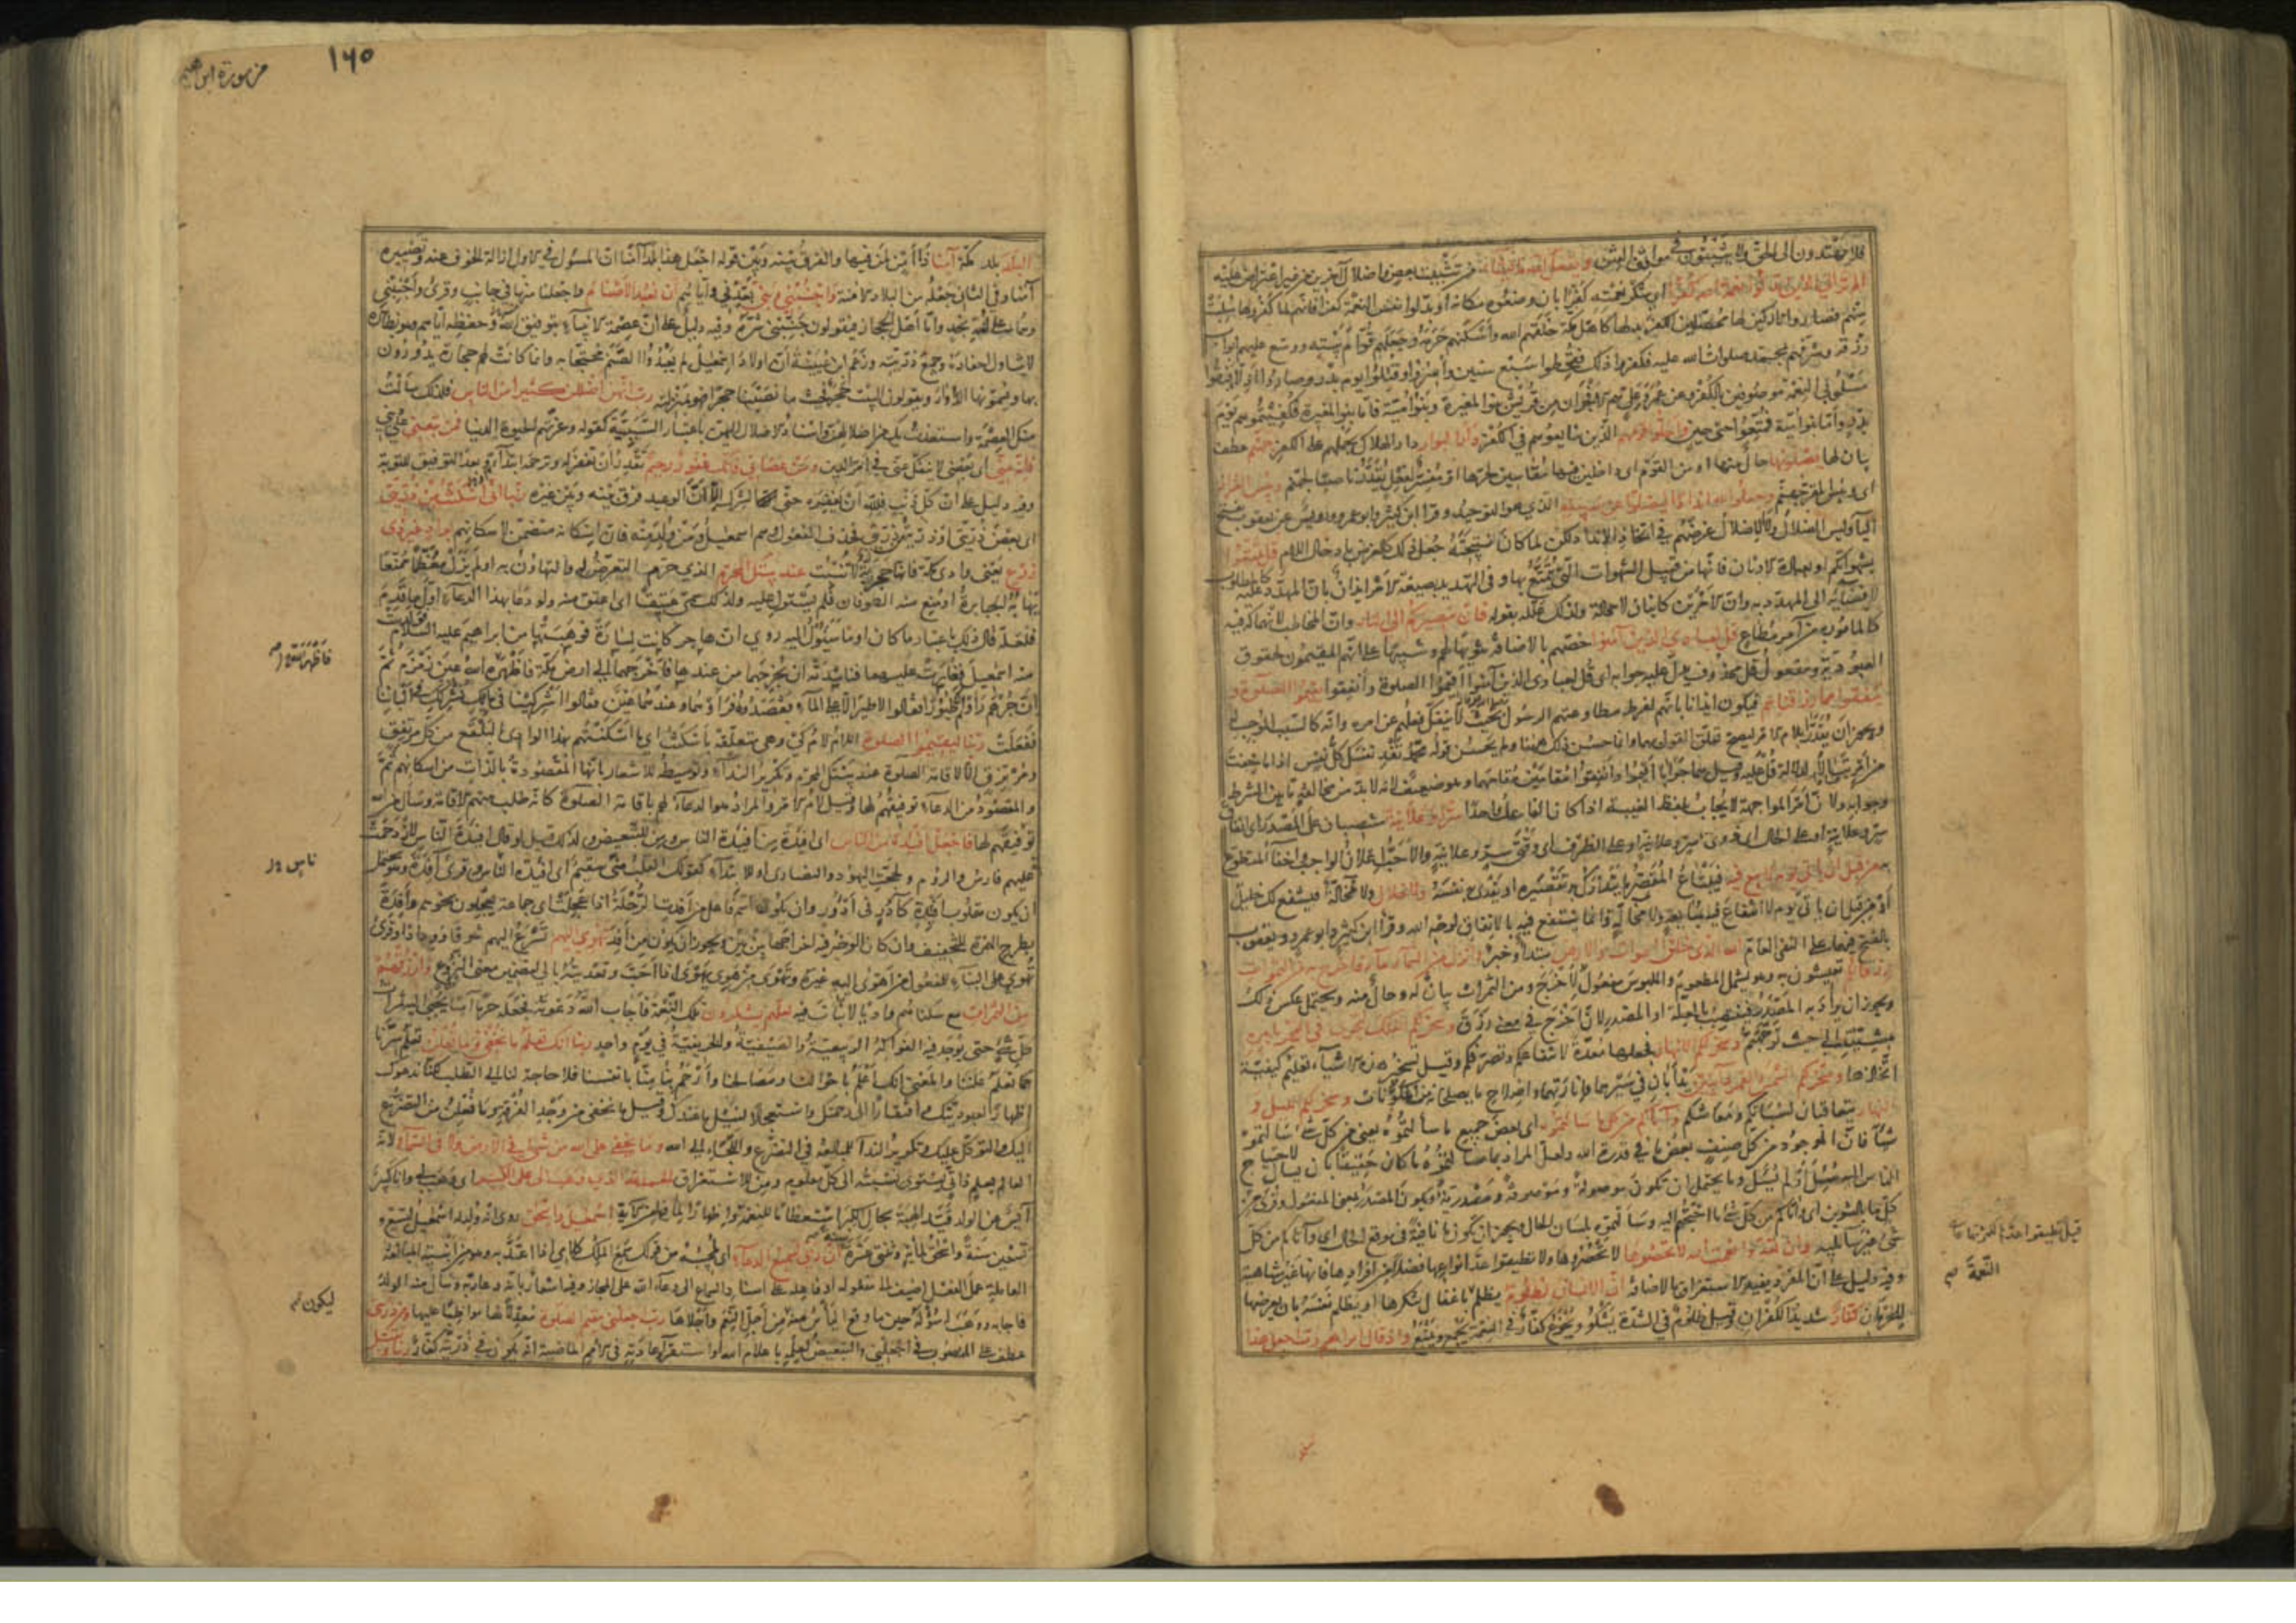 فلا يهتدون الى الحق ولا يثبتون في مواقف الفتن ويفعل الله ما يشاء من تثبيت بعض واضلال آخرين من غير اعتراض عليه
الم تر الى الذين بدلوا نعمة الله كفرا اى شكر نعمته كفرا بان وضعوه مكانه او بدلوا نفس النعمة كفرا فانهم لما كفروها سلبت
منهم فصاروا تاركين لها محصلين الكفر بدلها كاهل مكة خلقهم الله واسكنهم حرمه وجعلهم قوام بيته ووسع عليهم ابواب
رزقه وشرفهم بمحمد صلوات الله عليه فكفروا ذلك فقحطوا سبع سنين وأسروا وقتلوا يوم بدر وصاروا اذلاء فبقوا
مسلوبي النعمة موصوفين بالكفر وعن عمر وعلي هم الافجران من قريش بنو المغيرة وبنو امية فأما بنو المغيرة فكفيتموهم يوم
بدر وأما بنو امية فمتعوا حتى حين واحلوا قومهم الذين شايعوهم في الكفر دار البوار دار الهلاك بحملهم على الكفر جهنم عطف
بيان لها يصلونها حال منها او من القوم اى داخلين فيها مقاسين لحرها او مفسر لفعل يقدر ناصبا لجهنم وبئس القرار
اى وبئس المقر جهنم وجعلوا لله اندادا ليضلوا عن سبيله الذي هو التوحيد وقرأ ابن كثير وابو عمرو ورويس عن يعقوب بفتح
الياء وليس الضلال ولا الاضلال غرضهم في اتخاذ الانداد لكن لما كان نتيجته جعل ذلك كالغرض بادخال اللام قل تمتعوا
بشهواتكم او بعبادة الاوثان فانها من قبيل الشهوات التي يتمتع بها وفى التهديد بصيغة الامر ايذان بان المهدد عليه كالمطلوب
لافضائه الى المهدد به وان الامرين كائنان لا محالة ولذلك علله بقوله فان مصيركم الى النار وان المخاطب لانهماكه فيه
كالمأمور به من آمر مطاع قل لعبادي الذين آمنوا خصهم بالاضافة تنويها لهم وتنبيها على انهم المقيمون لحقوق
العبودية ومفعول قل محذوف يدل عليه جوابه اى قل لعبادى الذين آمنوا اقيموا الصلوة وأنفقوا يقيموا الصلوة و
ينفقوا مما رزقناهم فيكون ايذانا بانهم لفرط مطاوعتهم الرسول بحيث لا ينفك فعلهم عن امره وانه كالسبب الموجب له
ويجوز أن يقدر بلام الامر ليصح تعلق القول بهما وانما حسن ذلك ههنا ولم يحسن قوله محمد تفد نفسك كل نفس اذا ما خفت
من أمر تبالا لدلالة قل عليه وقيل هما جوابا أقيموا وأنفقوا مقامين مقامهما وهو ضعيف لانه لا بد من مخالفة ما بين الشرط
وجوابه ولان أمر المواجهة لا يجاب بلفظ الغيبة اذا كان الفاعل واحدا سرا وعلانية منتصبان على المصدر اى انفاق
سر وعلانية او على الحال اى ذوى سر وعلانية او على الظرف اى وقتى سر وعلانية والاحب اعلان الواجب واخفاء المتطوع
به من قبل ان يأتى يوم لا بيع فيه فيبتاع المقصر ما يتدارك به تقصيره او يفدى به نفسه ولا خلال ولا مخالة فيشفع لك خليل
أو من قبل ان يأتى يوم لا انتفاع فيه بمبايعة ولا مخالة وانما ينتفع فيه بالانفاق لوجه الله وقرأ ابن كثير وابو عمرو ويعقوب
بالفتح فيهما على النفى العام الله الذى خلق السموات والارض مبتدأ وخبر وانزل من السماء ماء فاخرج به من الثمرات
رزقا لكم تعيشون به وهو يشمل المطعوم والملبوس مفعول لأخرج ومن الثمرات بيان له وحال منه ويحتمل عكس ذلك
ويجوز ان يراد به المصدر فينتصب بالعلة او المصدر لان أخرج في معنى رزق وسخر لكم الفلك لتجرى فى البحر بأمره
بمشيئته الى حيث توجهتم وسخر لكم الانهار فجعلها معدة لانتفاعكم وتصرفكم وقيل تسخير هذه الاشياء تعليم كيفية
اتخاذها وسخر لكم الشمس والقمر دائبين يدأبان في سيرهما وانارتهما واصلاح ما يصلحانه من المكونات وسخر لكم الليل و
النهار يتعاقبان لسباتكم ومعاشكم وآتاكم من كل ما سألتموه اى بعض جميع ما سألتموه يعنى من كل شئ سألتموه
شيأ فان الموجود من كل صنف بعض ما في قدرة الله ولعل المراد بما سألتموه ما كان حقيقا بان يسأل لاحتياج
الناس اليه سئل أو لم يسئل وما يحتمل ان تكون موصولة وموصوفة ومصدرية ويكون المصدر بمعنى المفعول وقرئ من
كل بالتنوين اى وآتاكم من كل شئ ما احتجتم اليه وسألتموه بلسان الحال ويجوز ان تكون ما نافية فى موقع الحال اى وآتاكم من كل
شئ غير سائليه وان تعدوا نعمت الله لا تحصوها لا تحصروها ولا تطيقوا عد انواعها فضلا من افرادها فانها غير متناهية
وفيه دليل على ان المفرد يفيد الاستغراق بالاضافة ان الانسان لظلوم يظلم باغفال شكرها او يظلم نفسه بان يعرضها
للحرمان كفار شديد الكفران وقيل ظلوم في الشدة يشكو ويجزع كفار في النعمة يجمع ويمنع واذ قال ابراهيم رب اجعل هذا
النعمة
من سورة ابراهيم
١٦٥
البلد بلد مكة آمنا ذا أمن لمن فيها والفرق بينه وبين قوله اجعل هذا بلدا آمنا ان المسئول في الاول ازالة الخوف عنه وتصييره
آمنا وفى الثاني جعله من البلاد الآمنة واجنبنى وبنى بعدنى واياهم أن نعبد الاصنام واجعلنا منها في جانب وقرئ وأجنبنى
وهما على لغة نجد وأما أهل الحجاز فيقولون جنبنى شره وفيه دليل على ان عصمة الانبياء بتوفيق الله وحفظه اياهم وهو بظاهره
لا يتناول احفاده وجميع ذريته وزعم ابن عيينة أن اولاد اسمعيل لم يعبدوا الصنم محتجا به وانما كانت لهم حجارة يدورون
بها ويسمونها الدوار ويقولون البيت حجر فحيث ما نصبنا حجرا فهو بمنزلته رب انهن أضللن كثيرا من الناس فلذلك سألت
منك العصمة واستعذت بك من اضلالهن واسناد الاضلال اليهن باعتبار السببية كقوله وغرتهم الحيوة الدنيا فمن تبعنى على دينى
فانه منى اى بعضى لا ينفك عنى فى أمر الدين ومن عصانى فانك غفور رحيم تقدر أن تغفر له وترحمه ابتداء او بعد التوفيق للتوبة
وفيه دليل على ان كل ذنب فلله أن يغفره حتى الشرك إلا أن الوعيد فرق بينه وبين غيره ربنا انى أسكنت من ذريتى
اى بعض ذريتى او ذرية من ذريتى فحذف المفعول وهم اسمعيل ومن ولد منه فان إسكانه متضمن لاسكانهم بواد غير ذى
زرع يعنى وادى مكة فانها حجرية لا تنبت عند بيتك المحرم الذي حرمت التعرض له والتهاون به او لم يزل معظما ممنعا
يهابه الجبابرة او منع منه الطوفان فلم يستول عليه ولذلك سمى عتيقا اى اعتق منه ولو دعا بهذا الدعاء اول ما قدم
فلعله قال ذلك باعتبار ما كان او ما سيؤول اليه روي ان هاجر كانت لسارة فوهبتها من ابراهيم عليه السلام فولدت
منه اسمعيل فغارت عليهما فناشدته أن يخرجهما من عندها فأخرجهما الى ارض مكة فأظهر الله عين زمزم ثم
ان جرهم رأوا ثم طيورا فقالوا لا طير الا على الماء فقصدوه فرأوهما وعندهما عين فقالوا اشركينا في مائك نشركك في ألباننا
ففعلت ربنا ليقيموا الصلوة اللام لام كى وهى متعلقة باسكنت اى ما اسكنتهم بهذا الوادى البلقع من كل مرتفق
ومرتزق الا لاقامة الصلوة عند بيتك المحرم وتكرير النداء وتوسيطه للاشعار بانها المقصودة بالذات من اسكانهم ثمة
والمقصود من الدعاء توفيقهم لها وقيل لام الامر والمراد هو الدعاء لهم باقامة الصلوة كانه طلب منهم الاقامة وسأل من الله
توفيقهم لها فاجعل افئدة من الناس اى افئدة من أفئدة الناس ومن للتبعيض ولذلك قيل لو قال افئدة الناس لازدحمت
عليهم فارس والروم ولحجت اليهود والنصارى او للابتداء كقولك القلب منى سقيم اى افئدة الناس وقرئ آفدة وهو يحتمل
ان يكون مقلوب أفئدة كآدر فى أدؤر وان يكون اسم فاعل من أفدت الرحلة اذا عجلت اى جماعة يعجلون نحوهم وأفدة
بطرح الهمزة للتخفيف وان كان الوجه فيه اخراجها بين بين ويجوز ان يكون من أفد تهوى اليهم تسرع اليهم شوقا وودادا وقرئ
تهوى على البناء للمفعول من أهوى اليه غيره وتهوى من هوى يهوى اذا أحب وتعديته بالى لتضمن معنى النزوع وارزقهم
من الثمرات مع سكناهم واديا لا نبات فيه لعلهم يشكرون تلك النعمة فأجاب الله دعوته فجعله حرما آمنا يجبى اليه ثمرات
كل شئ حتى يوجد فيه الفواكه الربيعية والصيفية والخريفية في يوم واحد ربنا انك تعلم ما نخفى وما نعلن تعلم سرنا
كما تعلم علننا والمعنى انك أعلم باحوالنا ومصالحنا وأرحم بنا منا بأنفسنا فلا حاجة لنا الى الطلب لكنا ندعوك
إظهارا لعبوديتك وافتقارا الى رحمتك واستعجالا لنيل ما عندك وقيل ما نخفى من وجد الفرقة وما نعلن من التضرع
اليك والتوكل عليك وتكرير النداء للمبالغة في التضرع واللجاء الى الله وما يخفى على الله من شئ فى الارض ولا فى السماء لانه
العالم بعلم ذاتي يستوى نسبته الى كل معلوم ومن للاستغراق الحمد لله الذى وهب لى على الكبر اى وهب لى وانا كبير
آيس من الولد قيد الهبة بحال الكبر استعظاما للنعمة واظهارا لما فيها من الآية اسمعيل واسحق روى انه ولد له اسمعيل لتسع و
تسعين سنة واسحق لمائة وثنتى عشرة سنة ان ربى لسميع الدعاء اى لمجيبه من قولك سمع الملك كلامى اذا اعتد به وهو من ابنية المبالغة
العاملة عمل الفعل اضيف الى مفعوله او فاعله على اسناد السماع الى دعاء الله على المجاز وفيه اشعار بأنه دعا ربه وسأل منه الولد
فاجابه ووهب له سؤله حين ما وقع اليأس منه ليكون من أجل النعم وأجلاها رب اجعلنى مقيم الصلوة معدلا لها مواظبا عليها ومن ذريتى
عطف على المنصوب فى اجعلنى والتبعيض لعلمه باعلام الله او استقراء عادته في الامم الماضية انه يكون في ذريته كفار ربنا وتقبل
ناس
ليكون